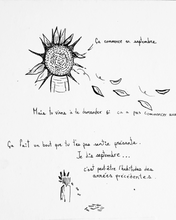 Ça commence en septembre.
Mais tu viens à te demander si ça a pas commencé avant
Ça fait un bout que tu t'es pas sentie
Je dis septembre...
C'est peut-être l'habitude des
années précédentes.